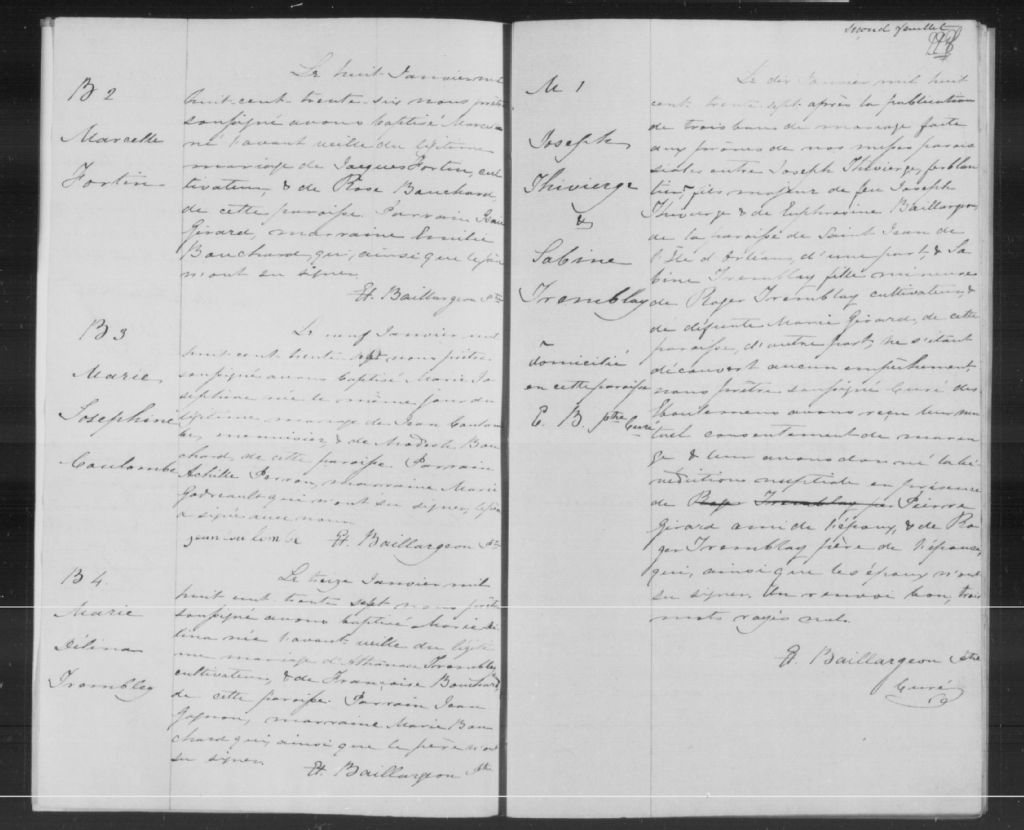 B 2
Marcelle
Fortin
Le huit Janvier mil
huit-cent-trente-six nous prêtre
soussigné avons baptisé Marcel
né l'avant veille du légitime
mariage de Jacques Fortin, cul
tivateur, & de Rose Bouchard
de cette paroisse. Parrain Jean
Girard, marraine Emilie
Bouchard, qui, ainsi que le père
n'ont su signer.
Et. Baillargeon Ptre
B 3
Marie
Josephine
Coulombe
Le neuf Janvier mil
huit cent trente sept, nous prêtre
soussigné avons baptisé Marie Jo
sephine née le même jour du
légitime mariage de Jean Coulom
be, menuisier, & de Modeste Bou
chard, de cette paroisse. Parrain
Achille Perron, marraine Marie
Godreault qui n'ont su signer, le père
a signé avec nous.
jean coulombe Et. Baillargeon Ptre
B 4.
Marie
Délina
Trembley
Le treize Janvier mil
huit cent trente sept nous prêtre
soussigné avons baptisé Marie Dé
lina née l'avant veille du légiti
me mariage d'Athanase Tremblay
cultivateur, & de Françoise Bouchard
de cette paroisse. Parrain Jean
Gagnon, marraine Marie Bou
chard qui, ainsi que le père n'ont
su signer.
Et. Baillargeon Ptre
Second feuillet
M 1
Joseph
Thivierge
&
Sabine
Tremblay
domicilié
en cette paroisse
E. B. ptre Curé
Le dix Janvier mil huit
cent trente sept après la publication
de trois bans de mariage faite
aux prônes de nos messes parois
siales entre Joseph Thivierge, ferblan
tier, fils majeur de feu Joseph
Thivierge & de Euphrosine Baillargeon
de la paroisse de Saint Jean de
l'Ile d'Orléans, d'une part; & Sa
bine Tremblay fille mineure
de Roger Tremblay cultivateur, &
de défunte Marie Girard, de cette
paroisse, d'autre part; ne s'étant
découvert aucun empêchement
nous prêtre soussigné Curé des
Eboulemens avons reçu leur mu
tuel consentement de maria
ge & leur avons donné la bé
nédiction nuptiale en présence
de Roger Tremblay Pierre
Girard ami de l'époux, & de Ro
ger Tremblay père de l'épouse,
qui, ainsi que les époux n'ont
su signer. Un renvoi bon, trois
mots rayés nuls.
Et. Baillargeon Ptre
Curé